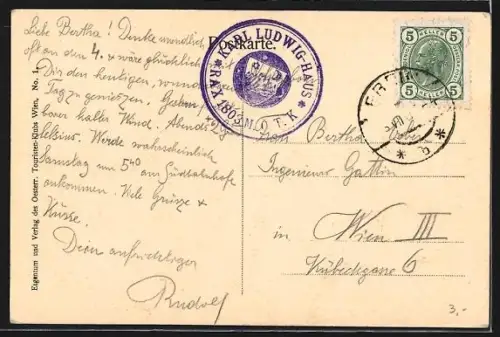 Liebe Bertha! Denke unendlich
oft an den 4. & wäre glücklich
Dir den heutigen,
Tag zu geniessen.
kalter Wind. Abends
Celsius. Werde wahrscheinlich
Samstag um 5 40 am Südbahnhofe
ankommen. Viele Grüsse &
Küsse.
Dein aufrichtiger
Rudolf
Eigentum und Verlag des Oesterr. Touristen-Klubs Wien, No. 1.
Postkarte.
KARL LUDWIG-HAUS
* RAX 1803 M. Ö. T. K. *
5 HELLER 5
5 HELLER 5
Bertha
Ingenieurs Gattin
in Wien III
Kübeckgasse 6
3,-